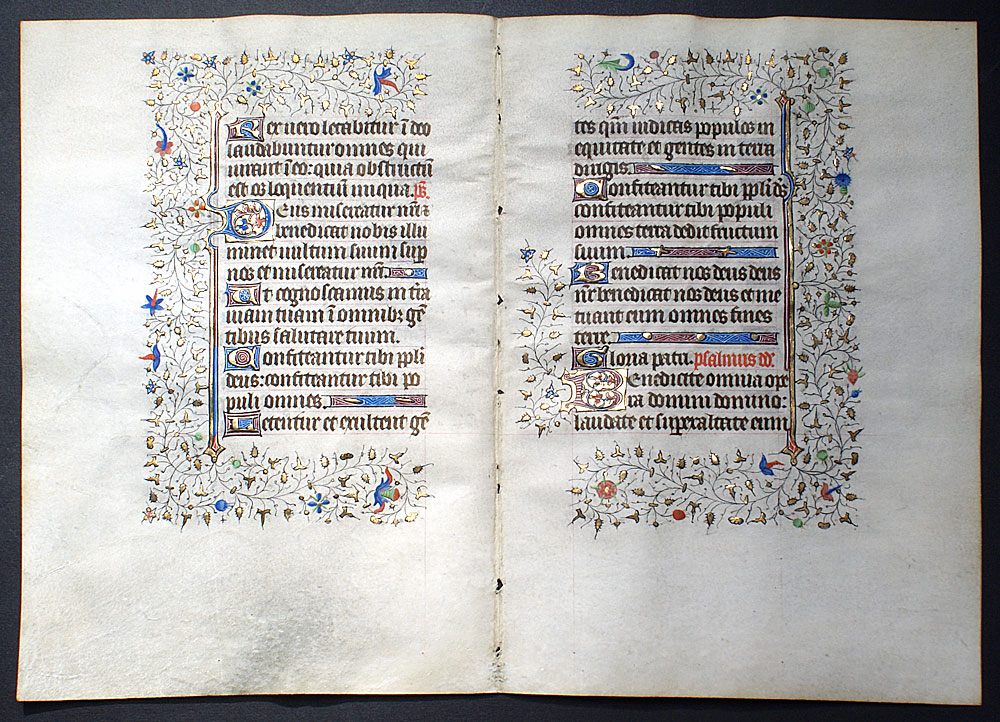 Rex uero letabitur ĩ deo
laudabuntur omnes qui
iurant ĩ eo: quia obstructũ
est os loquentiũ iniqua. ps.
Deus misereatur nr̃i ⁊
benedicat nobis illu
minet uultum suum sup
nos et misereatur nr̃i.
Ut cognoscamus in tr̃a
uiam tuam ĩ omnibꝫ gẽ
tibus salutare tuum.
Confiteantur tibi ppl̃i
deus: confiteantur tibi po
puli omnes.
Letentur et exultent gẽ
tes qm̃ iudicas populos in
equitate et gentes in terra
dirigis.
Confiteantur tibi ppl̃i
confiteantur tibi populi
omnes terra dedit fructum
suum.
Benedicat nos deus deus
nr̃ benedicat nos deus et me
tuant eum omnes fines
terre.
Gloria patri. psalmus
Benedicite omnia ope
ra domini domino:
laudate et superaltate eum